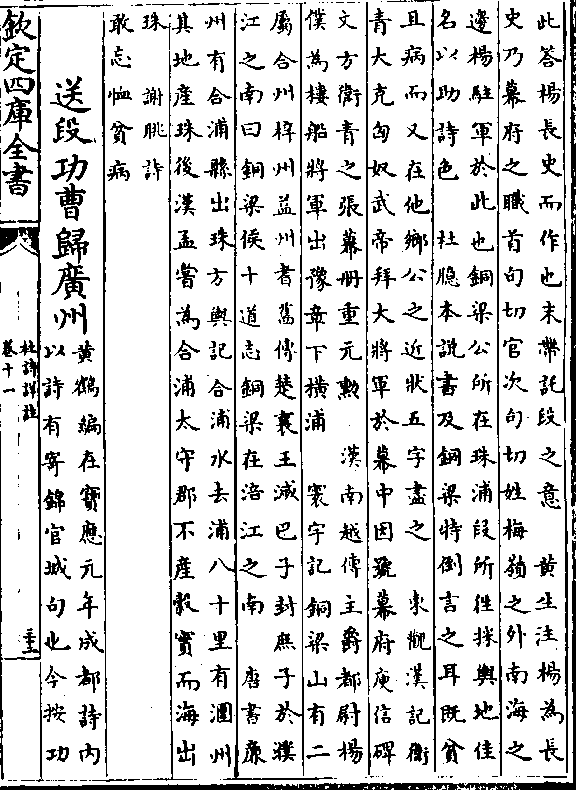 此答楊長史而作也末帶託段之意　黃生注楊為長
史乃幕府之職首句切官次句切姓梅嶺之外南海之
邊楊駐軍於此也銅梁公所在珠浦段所往採輿地佳
名以助詩色　杜臆本說書及銅梁特倒言之耳既貧
且病而又在他鄉公之近狀五字盡之　東觀漢記衛
青大克匈奴武帝拜大將軍於幕中因號幕府庾信碑
文方衛青之張幕冊重元勲　漢南越傳主爵都尉楊
僕為樓船將軍出豫章下橫浦　寰宇記銅梁山有二
屬合州梓州益州耆舊傳楚襄王滅巴子封庶子於濮
江之南曰銅梁侯十道志銅梁在涪江之南　唐書廉
州有合浦縣出珠方輿記合浦水去浦八十里有潿州
其地産珠後漢孟嘗為合浦太守郡不産穀實而海出
珠　謝朓詩
敢忘恤貧病
送段功曹歸廣州
黃鶴編在寶應元年成都詩内
以詩有寄錦官城句也今按功
欽定四庫全書
杜詩詳註
卷十一
三十二